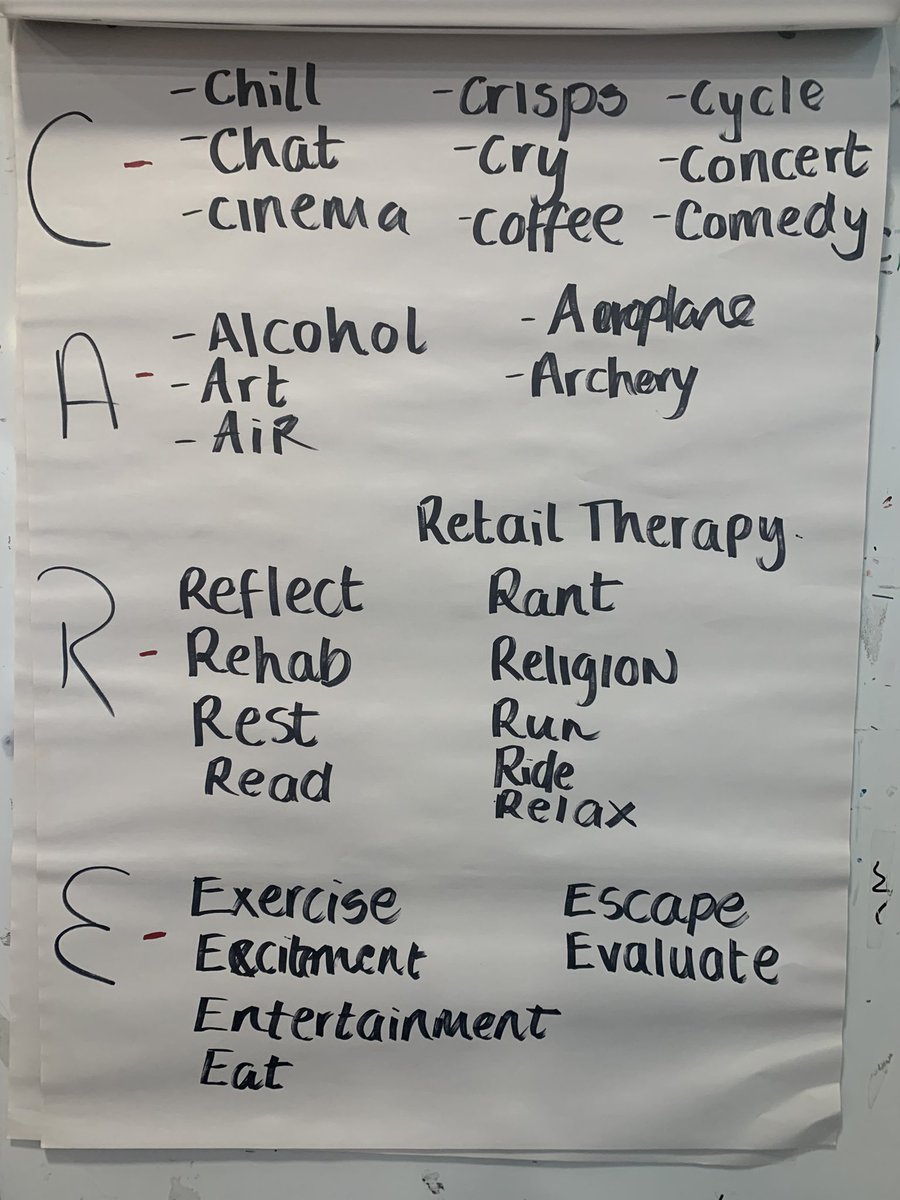 C - - Chill - Crisps - Cycle
- Chat - Cry - Concert
- Cinema - Coffee - Comedy
A - - Alcohol - Aeroplane
- Art - Archery
- AiR
Retail Therapy.
R - Reflect Rant
Rehab Religion
Rest Run
Read Ride
Relax
E - Exercise Escape
Excitement Evaluate
Entertainment
Eat